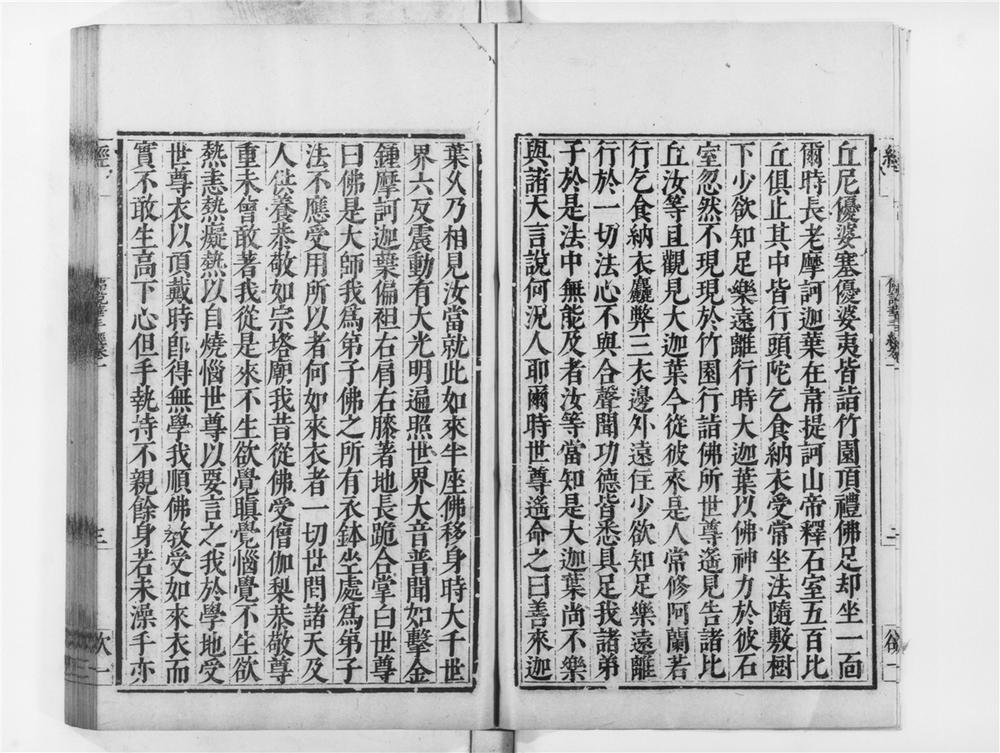 丘尼優婆塞優婆夷皆詣竹園頂禮佛足却坐一面
爾時長老摩訶迦葉在甫提訶山帝釋石室五百比
丘俱止其中皆行頭陀乞食納衣受常坐法隨敷樹
下少欲知足樂遠離行時大迦葉以佛神力於彼石
室忽然不現現於竹園行詣佛所世尊遙見告諸比
丘汝等且觀見大迦葉今從彼來是人常修阿蘭若
行乞食納衣麤弊三衣邊外遠住少欲知足樂遠離
行於一切法心不與合聲聞功德皆悉具足我諸弟
子於是法中無能及者汝等當知是大迦葉尚不樂
與諸天言說何況人耶爾時世尊遙命之曰善來迦
葉久乃相見汝當就此如來半座佛移身時大千世
界六反震動有大光明遍照世界大音普聞如擊金
鍾摩訶迦葉偏袒右肩右膝著地長跪合掌白世尊
曰佛是大師我為弟子佛之所有衣鉢坐處為弟子
法不應受用所以者何如來衣者一切世間諸天及
人供養恭敬如宗塔廟我昔從佛受僧伽梨恭敬尊
重未曾敢著我從是來不生欲覺瞋覺惱覺不生欲
熱恚熱癡熱以自燒惱世尊以要言之我於學地受
世尊衣以頂戴時即得無學我順佛教受如來衣而
實不敢生高下心但手執持不親餘身若未澡手亦